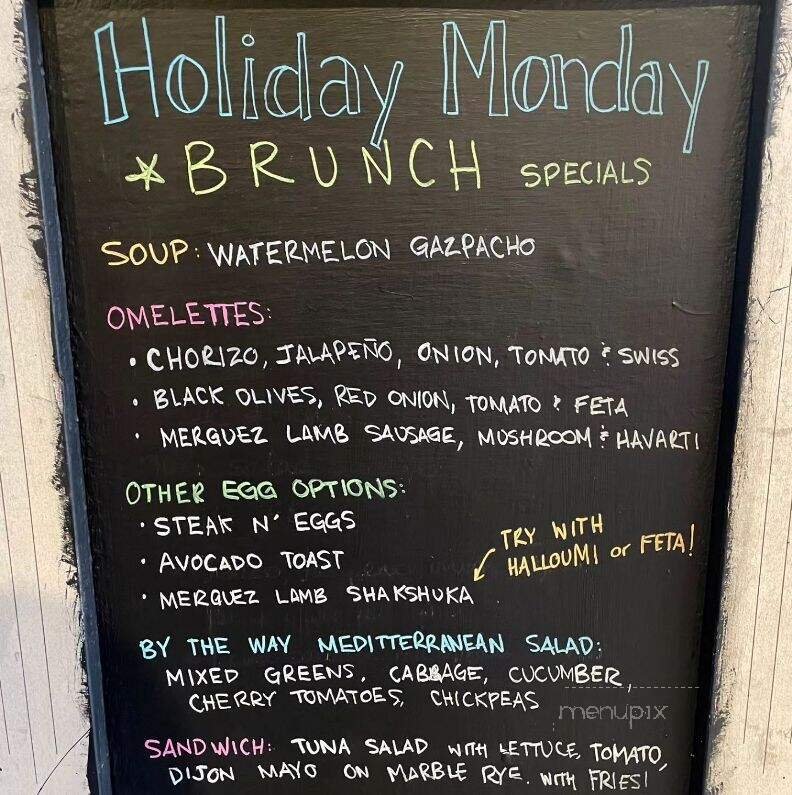 Holiday Monday
* BRUNCH SPECIALS
SOUP: WATERMELON GAZPACHO
OMELETTES:
• CHORIZO, JALAPEÑO, ONION, TOMATO & SWISS
• BLACK OLIVES, RED ONION, TOMATO & FETA
• MERGUEZ LAMB SAUSAGE, MUSHROOM & HAVARTI
OTHER EGG OPTIONS:
• STEAK N' EGGS
• AVOCADO TOAST
• MERGUEZ LAMB SHAKSHUKA
TRY WITH
HALLOUMI or FETA!
BY THE WAY MEDITTERRANEAN SALAD:
MIXED GREENS, CABBAGE, CUCUMBER,
CHERRY TOMATOES, CHICKPEAS
menupix
SANDWICH: TUNA SALAD WITH LETTUCE, TOMATO,
DIJON MAYO ON MARBLE RYE. WITH FRIES!